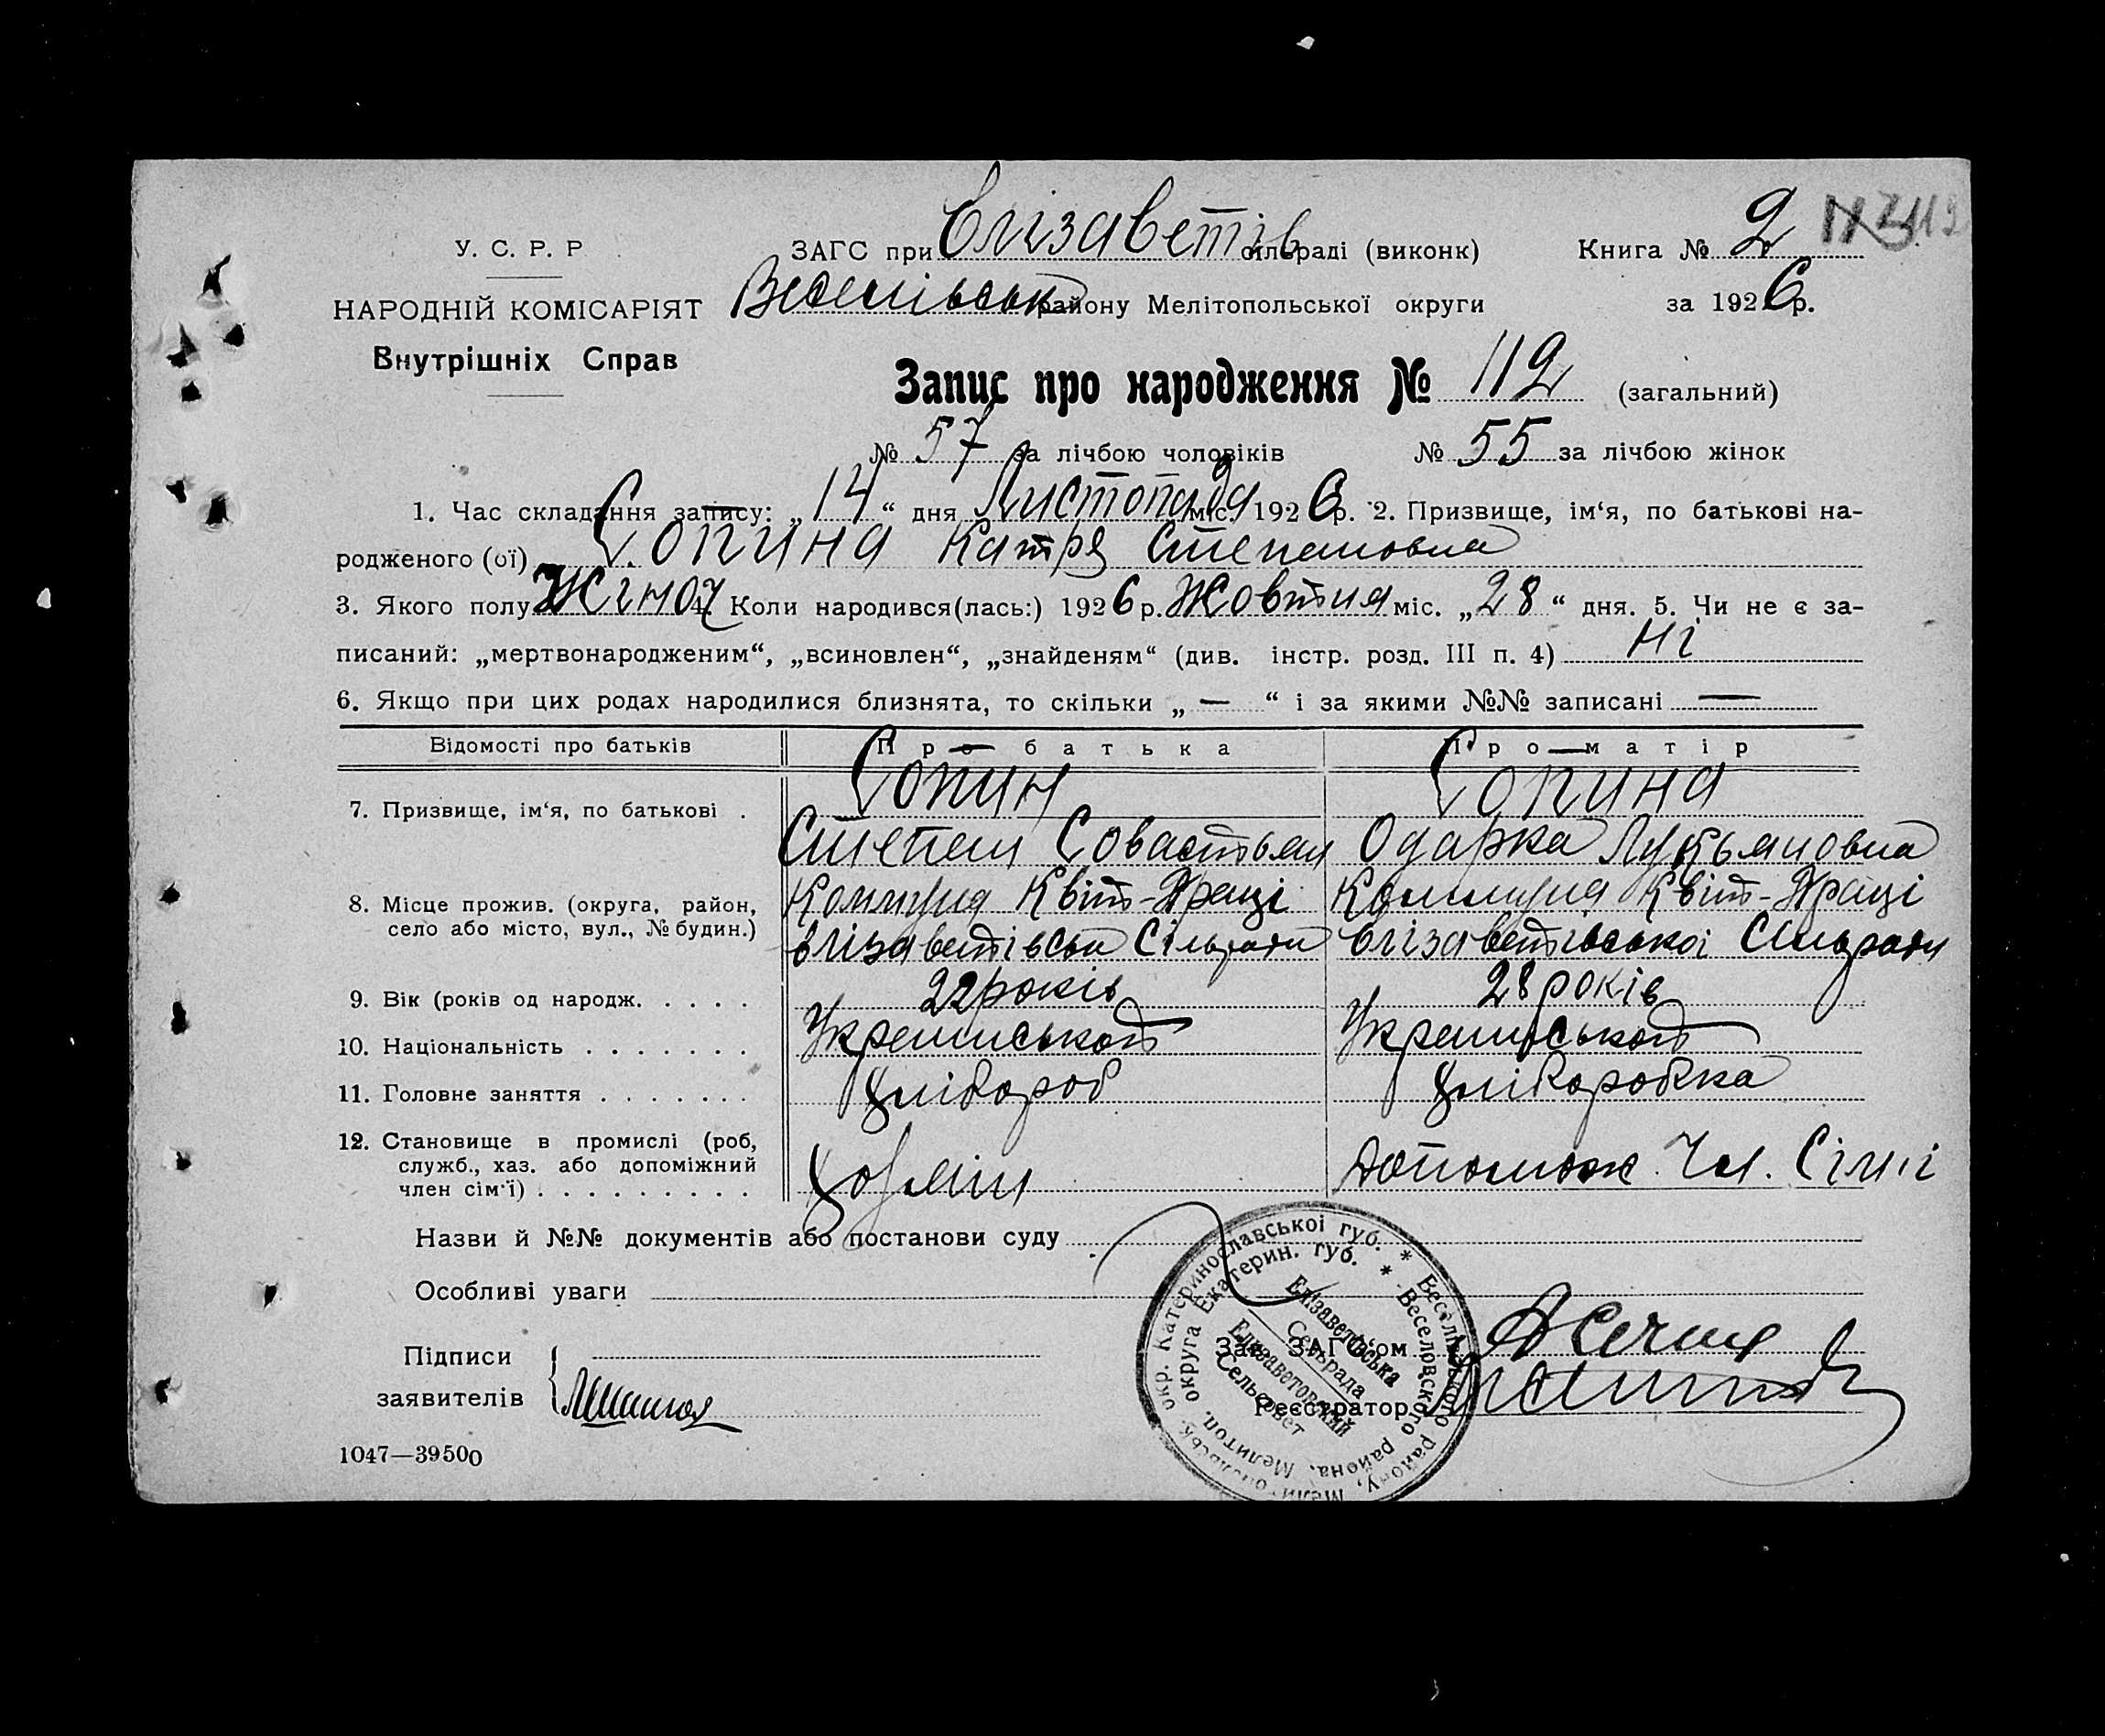 У. С. Р. Р
НАРОДНІЙ КОМІСАРІЯТ
Внутрішніх Справ
ЗАГС при Єлізаветів сільраді (виконк)
Веселівськ району Мелітопольської округи
Книга № 2
за 1926 р.
Запис про народження № 112 (загальний)
№ 57 за лічбою чоловіків № 55 за лічбою жінок
1. Час складання запису: „14“ дня Листопада міс. 1926 р. 2. Призвище, ім‘я, по батькові на-
родженого (ої) Сопина Катря Степановна
3. Якого полу Жіноч 4. Коли народився(лась:) 1926 р. Жовтня міс. „28“ дня. 5. Чи не є за-
писаний: „мертвонародженим“, „всиновлен“, „знайденям“ (див. інстр. розд. III п. 4) Ні
6. Якщо при цих родах народилися близнята, то скільки „ — “ і за якими №№ записані —
Відомості про батьків Про батька Про матір
7. Призвище, ім‘я, по батькові . Сопин Сопина
Степан Совастьян Одарка Лукьяновна
8. Місце прожив. (округа, район, Коммуна Квіт-Праці Коммуна Квіт-Праці
село або місто, вул., № будин.) Єлізаветівськ Сільради Єлізаветівської Сільради
9. Вік (років од народж. . . . . 22 років 28 років
10. Національність . . . . . . . Украинськой Украинськой
11. Головне заняття . . . . . . . Хлібороб Хліборобка
12. Становище в промислі (роб,
служб., хаз. або допоміжний Хозяїн Допомож. Чл. Сімї
член сім‘ї) . . . . . . . . .
Назви й №№ документів або постанови суду
Особливі уваги
Підписи
заявителів
Зав. ЗАГС‘ом
Реєстратор
1047—39500
окр. Катеринославської губ. * Веселівського району, Меліт
округа Екатерин. губ. * Веселовского района, Мелитоп.
Елізаветівська
Сельрада
Елизаветовский
Сельсовет